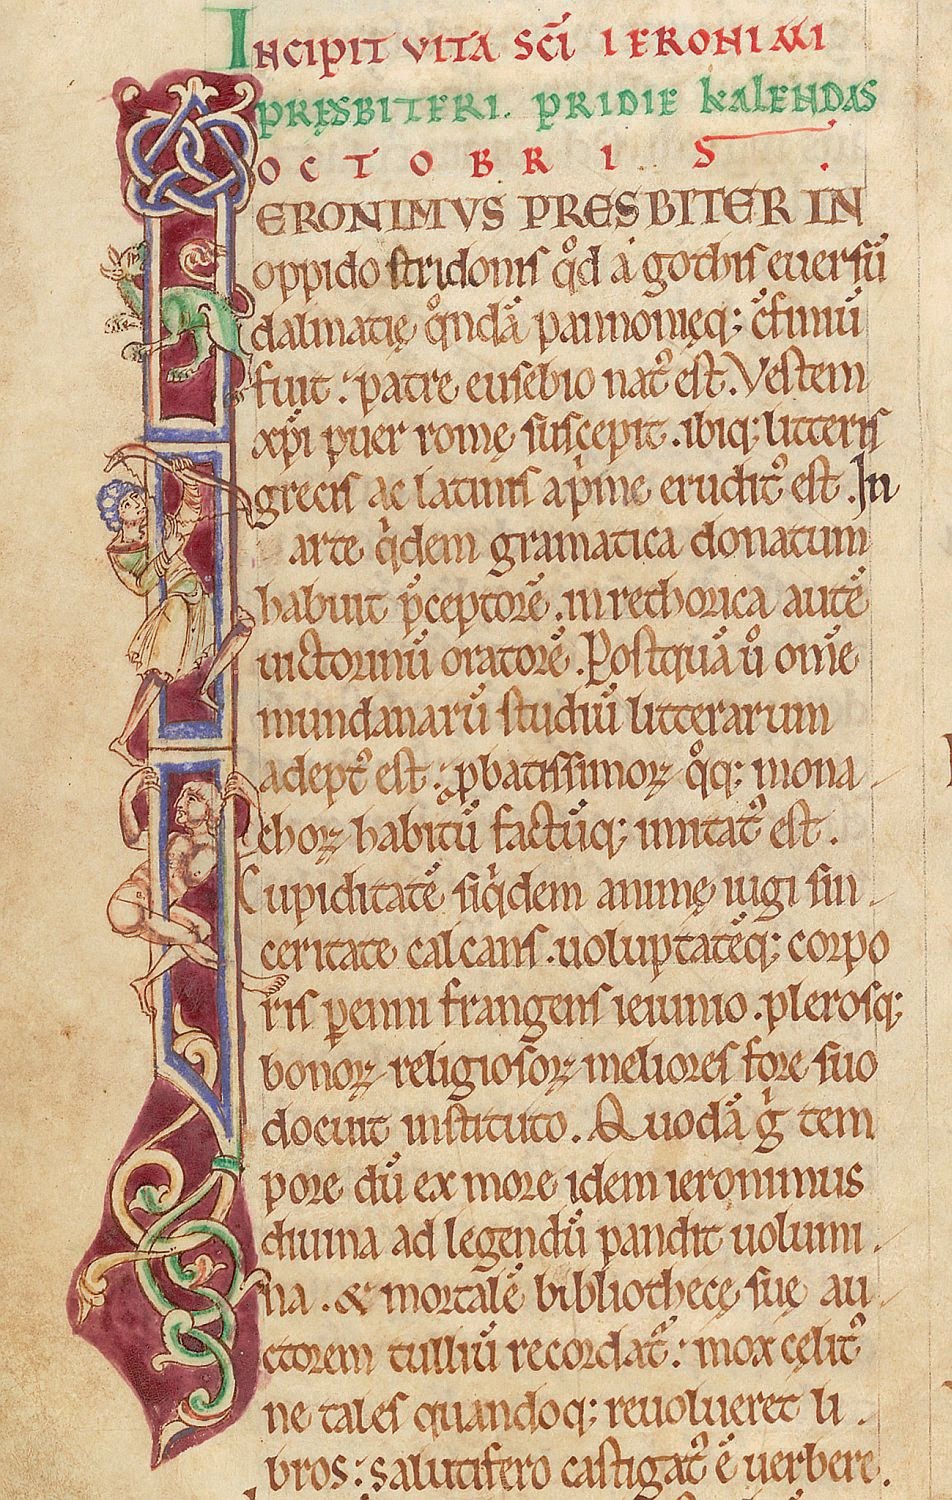 INCIPIT VITA SCĪ IERONIMI
PRĘSBITERI. PRIDIE KALENDAS
OCTOBRIS.
IERONIMVS PRESBITER IN
oppido stridonis qͦd a gothis euersū
dalmatię qͦndā pannonięq; ↄ̄finiū
fuit: patre eusebio nat᾽ est. Vestem
xp̄i puer romę suscepit. ibiq; litteris
grecis ac latinis ap͛me erudit᾽ est. In
arte qͥdem gramatica donatum
habuit p̄ceptorē. in rethorica autē
uictorinū oratorē. Postquā uͦ om̄e
mundanarū studiū litterarum
adept᾽ est: ꝓbatissimoꝝ qͦq; mona
choꝝ habitū factūq; imitat᾽ est.
Cupiditatē siqͥdem animę iugi sin
ceritate calcans. uoluptatēq; corpo
ris ꝑenni frangens ieiunio. plerosq;
bonoꝝ religiosoꝝ meliores fore suo
docuit instituto. Quodā gͥ tem
pore dū ex more idem ieronimus
diuina ad legendū pandit uolumi
na. & mortalē bibliothecę suę au
ctorem tulliū recordat᾽: mox cęlit᾽
ne tales quandoq; reuolueret li
bros: salutifero castigat᾽ ē uerbere.